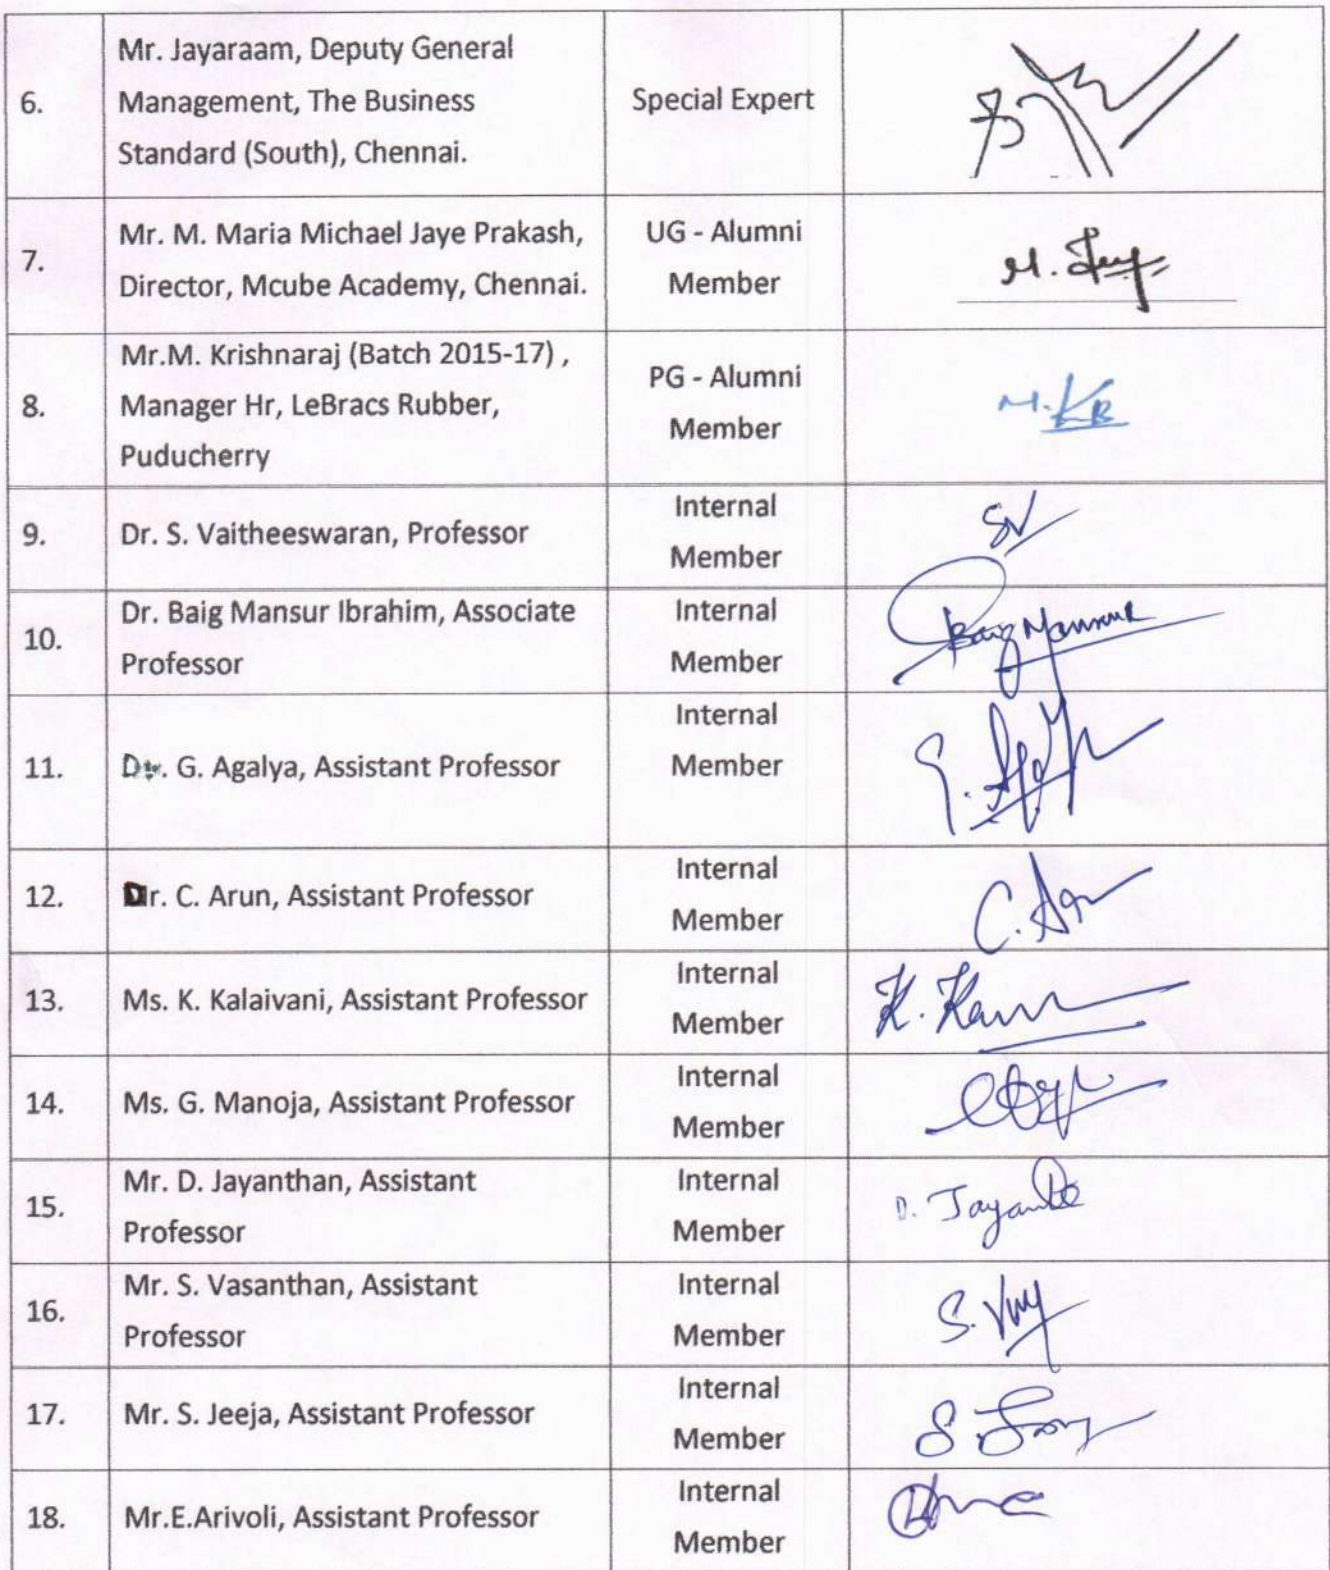 6.
Mr. Jayaraam, Deputy General
Management, The Business
Standard (South), Chennai.
Special Expert
7.
Mr. M. Maria Michael Jaye Prakash,
Director, Mcube Academy, Chennai.
UG - Alumni
Member
M.
8.
Mr.M. Krishnaraj (Batch 2015-17) ,
Manager Hr, LeBracs Rubber,
Puducherry
PG - Alumni
Member
M.KR
9.
Dr. S. Vaitheeswaran, Professor
Internal
Member
SV
10.
Dr. Baig Mansur Ibrahim, Associate
Professor
Internal
Member
Baig Mansur
11.
Dr. G. Agalya, Assistant Professor
Internal
Member
G.
12.
Dr. C. Arun, Assistant Professor
Internal
Member
C.
13.
Ms. K. Kalaivani, Assistant Professor
Internal
Member
K.
14.
Ms. G. Manoja, Assistant Professor
Internal
Member
15.
Mr. D. Jayanthan, Assistant
Professor
Internal
Member
D.
16.
Mr. S. Vasanthan, Assistant
Professor
Internal
Member
S.
17.
Mr. S. Jeeja, Assistant Professor
Internal
Member
S
18.
Mr.E.Arivoli, Assistant Professor
Internal
Member